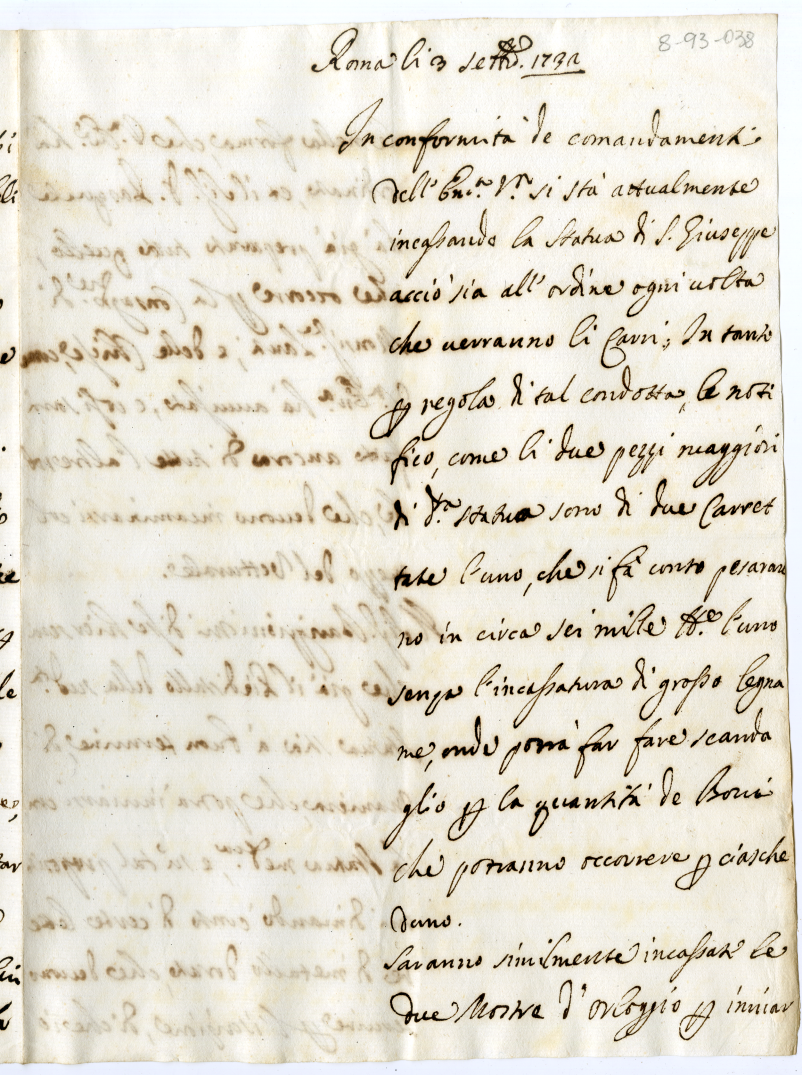 8-93-038
Roma li 3 settbre. 1732
In conformità de comandamenti
dell' Em.za V.ra si stà attualmente
incassando la statua di S. Giuseppe
acciò sia all' ordine ogni volta
che verranno li Carri; In tanto
p regola di tal condotta, le noti
fico, come li due pezzi maggiori
di d.a statua sono di due Carret
tate l'uno, che si fà conto pesaran
no in circa sei mille lb.e l'uno
senza l'incassatura di grosso legna
me, onde potrà far fare scanda
glio p la quantità de Bovi
che potranno occorrere p ciasche
duno.
Saranno similmente incassate le
due Mostre d' orloggio p inviar